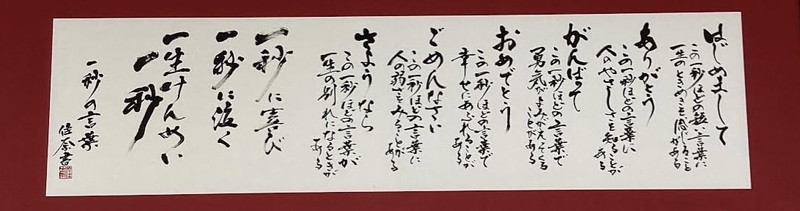 はじめまして
この一秒ほどの短い言葉に
一生のときめきを感じることがある
ありがとう
この一秒ほどの言葉に
人のやさしさを知ることがある
がんばって
この一秒ほどの言葉で
勇気がよみがえってくることがある
おめでとう
この一秒ほどの言葉で
幸せにあふれることがある
ごめんなさい
この一秒ほどの言葉に
人の弱さをみることがある
さようなら
この一秒ほどの言葉が
一生の別れになるときがある
一秒に喜び
一秒に泣く
一生けんめい
一秒
一秒の言葉
佳奈書